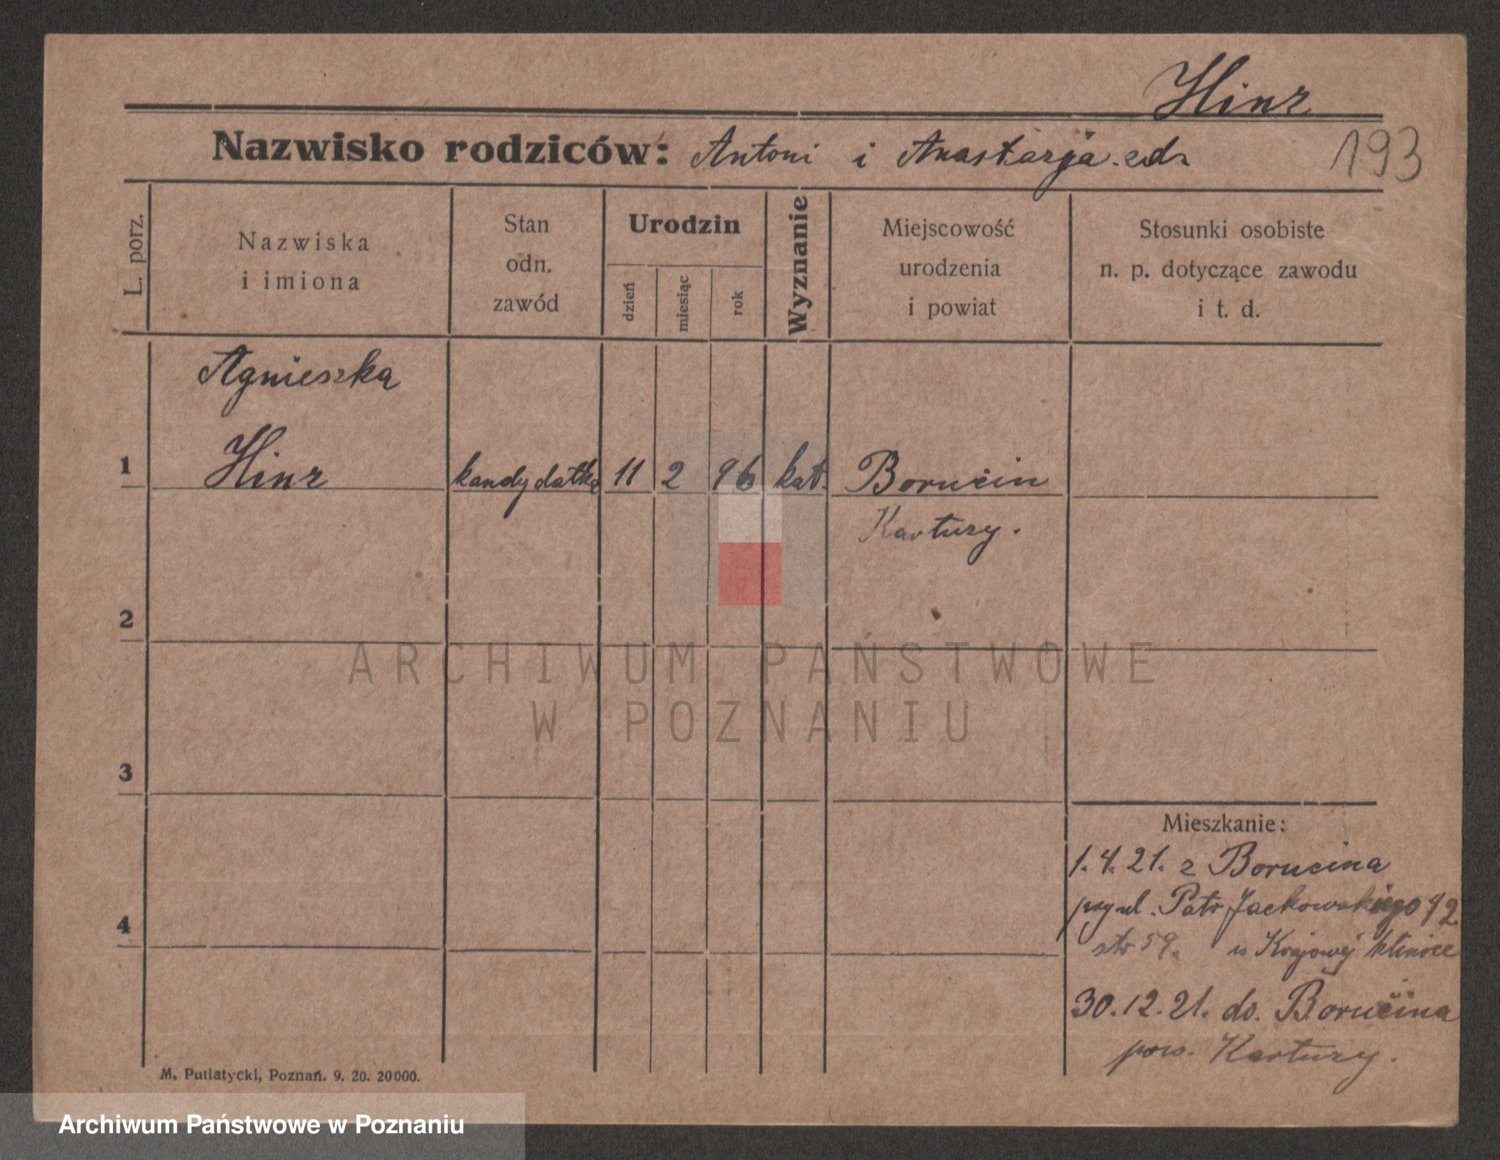 Hinz
Nazwisko rodziców: Antoni i Anastazja
193
L. porz.
Nazwiska
i imiona
Stan
odn.
zawód
Urodzin
dzień
miesiąc
rok
Wyznanie
Miejscowość
urodzenia
i powiat
Stosunki osobiste
n. p. dotyczące zawodu
i t. d.
Agnieszka
1 Hinz kandydatka 11 2 96 kat. Borucin
Kartuzy.
2
ARCHIWUM PAŃSTWOWE
W POZNANIU
3
Mieszkanie:
1.4.21. z Borucina
przy ul. Patr Jackowskiego 42
str 59. w Krajowej klinice
4
30.12.21. do. Borucina
pow. Kartuzy.
M. Putiatycki, Poznań. 9. 20. 20000.
Archiwum Państwowe w Poznaniu